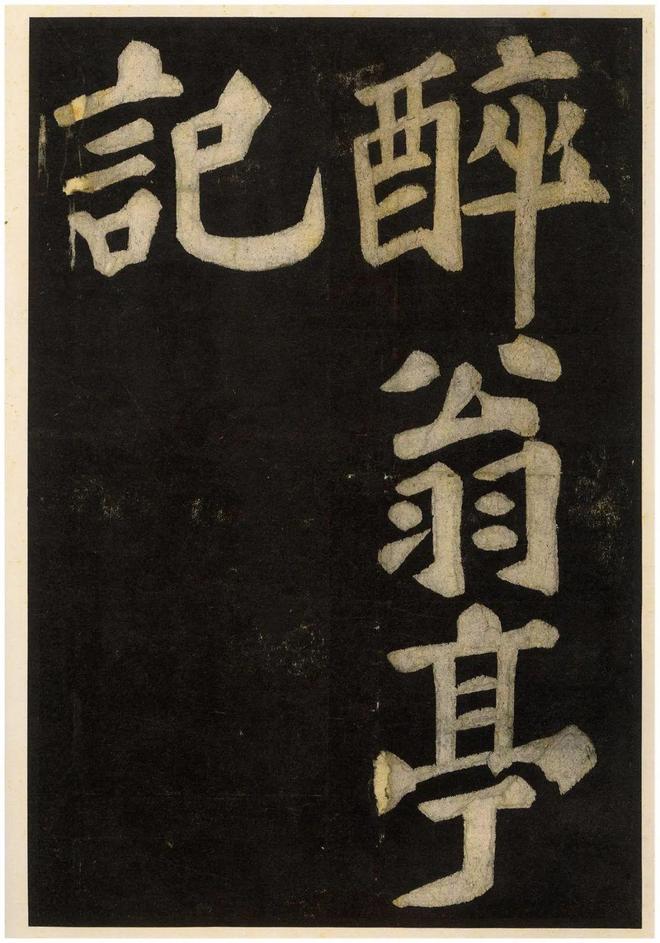 醉翁亭
記